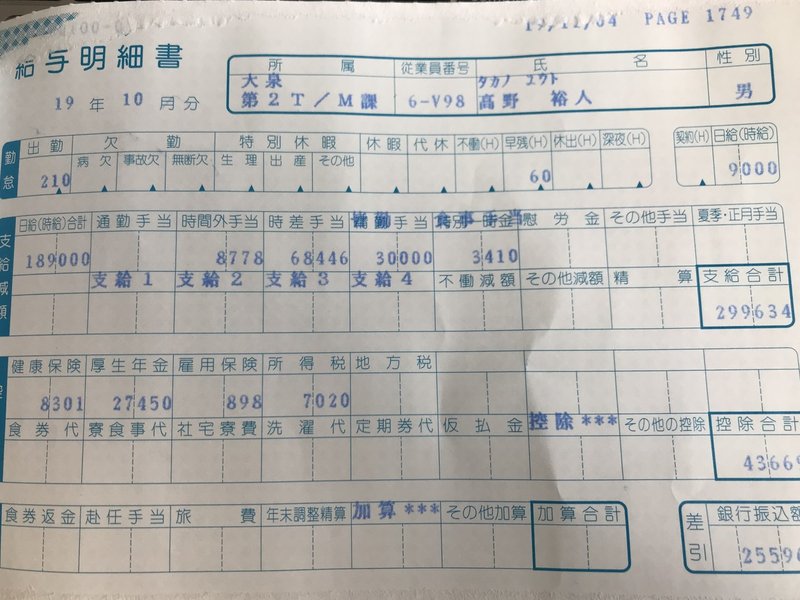 19/11/04 PAGE 1749
給与明細書
所属 従業員番号 氏名 性別
大泉 タカノ ユウト
19年10月分 第2T/M課 6-V98 高野 裕人 男
勤怠 出勤 欠勤 特別休暇 休暇 代休 不働(H) 早残(H) 休出(H) 深夜(H) 契約(H) 日給(時給)
病欠 事故欠 無断欠 生理 出産 その他
210 60 9000
支給減額 日給(時給)合計 通勤手当 時間外手当 時差手当 手当 食事手当 慰労金 その他手当 夏季・正月手当
189000 8778 68446 30000 3410
支給1 支給2 支給3 支給4 不働減額 その他減額 精算 支給合計
299634
健康保険 厚生年金 雇用保険 所得税 地方税
8301 27450 898 7020
食券代 寮食事代 社宅寮費 洗濯代 定期券代 仮払金 控除*** その他の控除 控除合計
43669
食券返金 赴任手当 旅費 年末調整精算 加算*** その他加算 加算合計 差引 銀行振込額